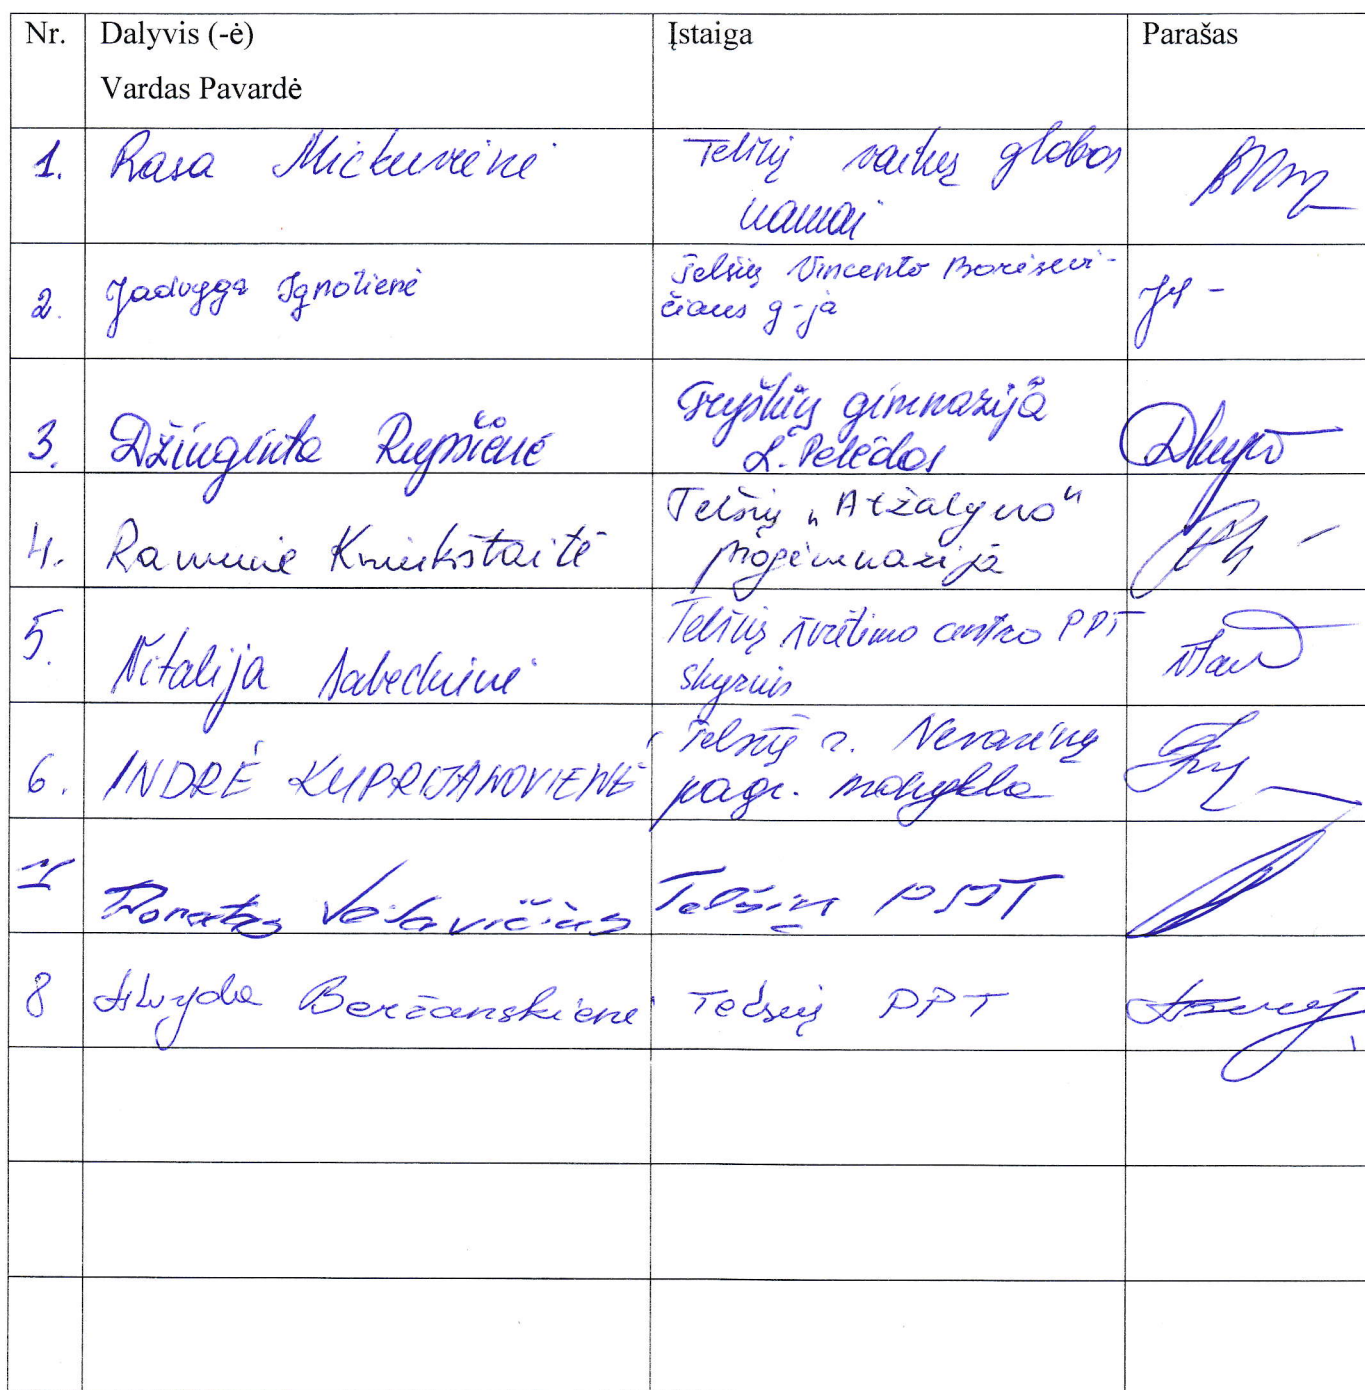 Nr. Dalyvis (-ė) Įstaiga Parašas
Vardas Pavardė
1. Rasa Mickuvienė Telšių vaikų globos
namai
2. Jadvyga Ignotienė Telšių Vincento Borisevi-
čiaus g-ja
3. Džiuginta Rupšienė Tryškių gimnazija
L. Pelėdos
4. Ramunė Telšių „Atžalyno"
progimnazija
5. Vitalija Telšių švietimo centro PPT
skyrius
6. INDRĖ KUPRIJANOVIENĖ Telšių r. Nevarėnų
pagr. mokykla
7 Donatas Telšių
8 Alvyda Berčanskienė Telšių PPT